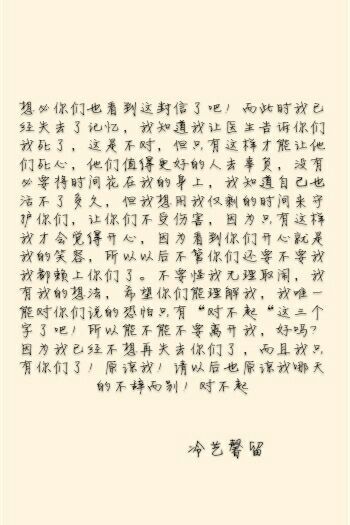 想必你们也看到这封信了吧！而此时我已
经失去了记忆，我知道我让医生告诉你们
我死了，这是不对，但只有这样才能让他
们死心，他们值得更好的人去辜负，没有
必要将时间花在我的身上，我知道自己也
活不了多久，但我想用我仅剩的时间来守
护你们，让你们不受伤害，因为只有这样
我才会觉得开心，因为看到你们开心就是
我的笑容，所以以后不管你们还要不要我
我都赖上你们了。不要怪我无理取闹，我
有我的想法，希望你们能理解我，我唯一
能对你们说的恐怕只有“对不起“这三个
字了吧！所以能不能不要离开我，好吗？
因为我已经不想再失去你们了，而且我只
有你们了！原谅我！请以后也原谅我哪天
的不辞而别！对不起
冷艺馨留